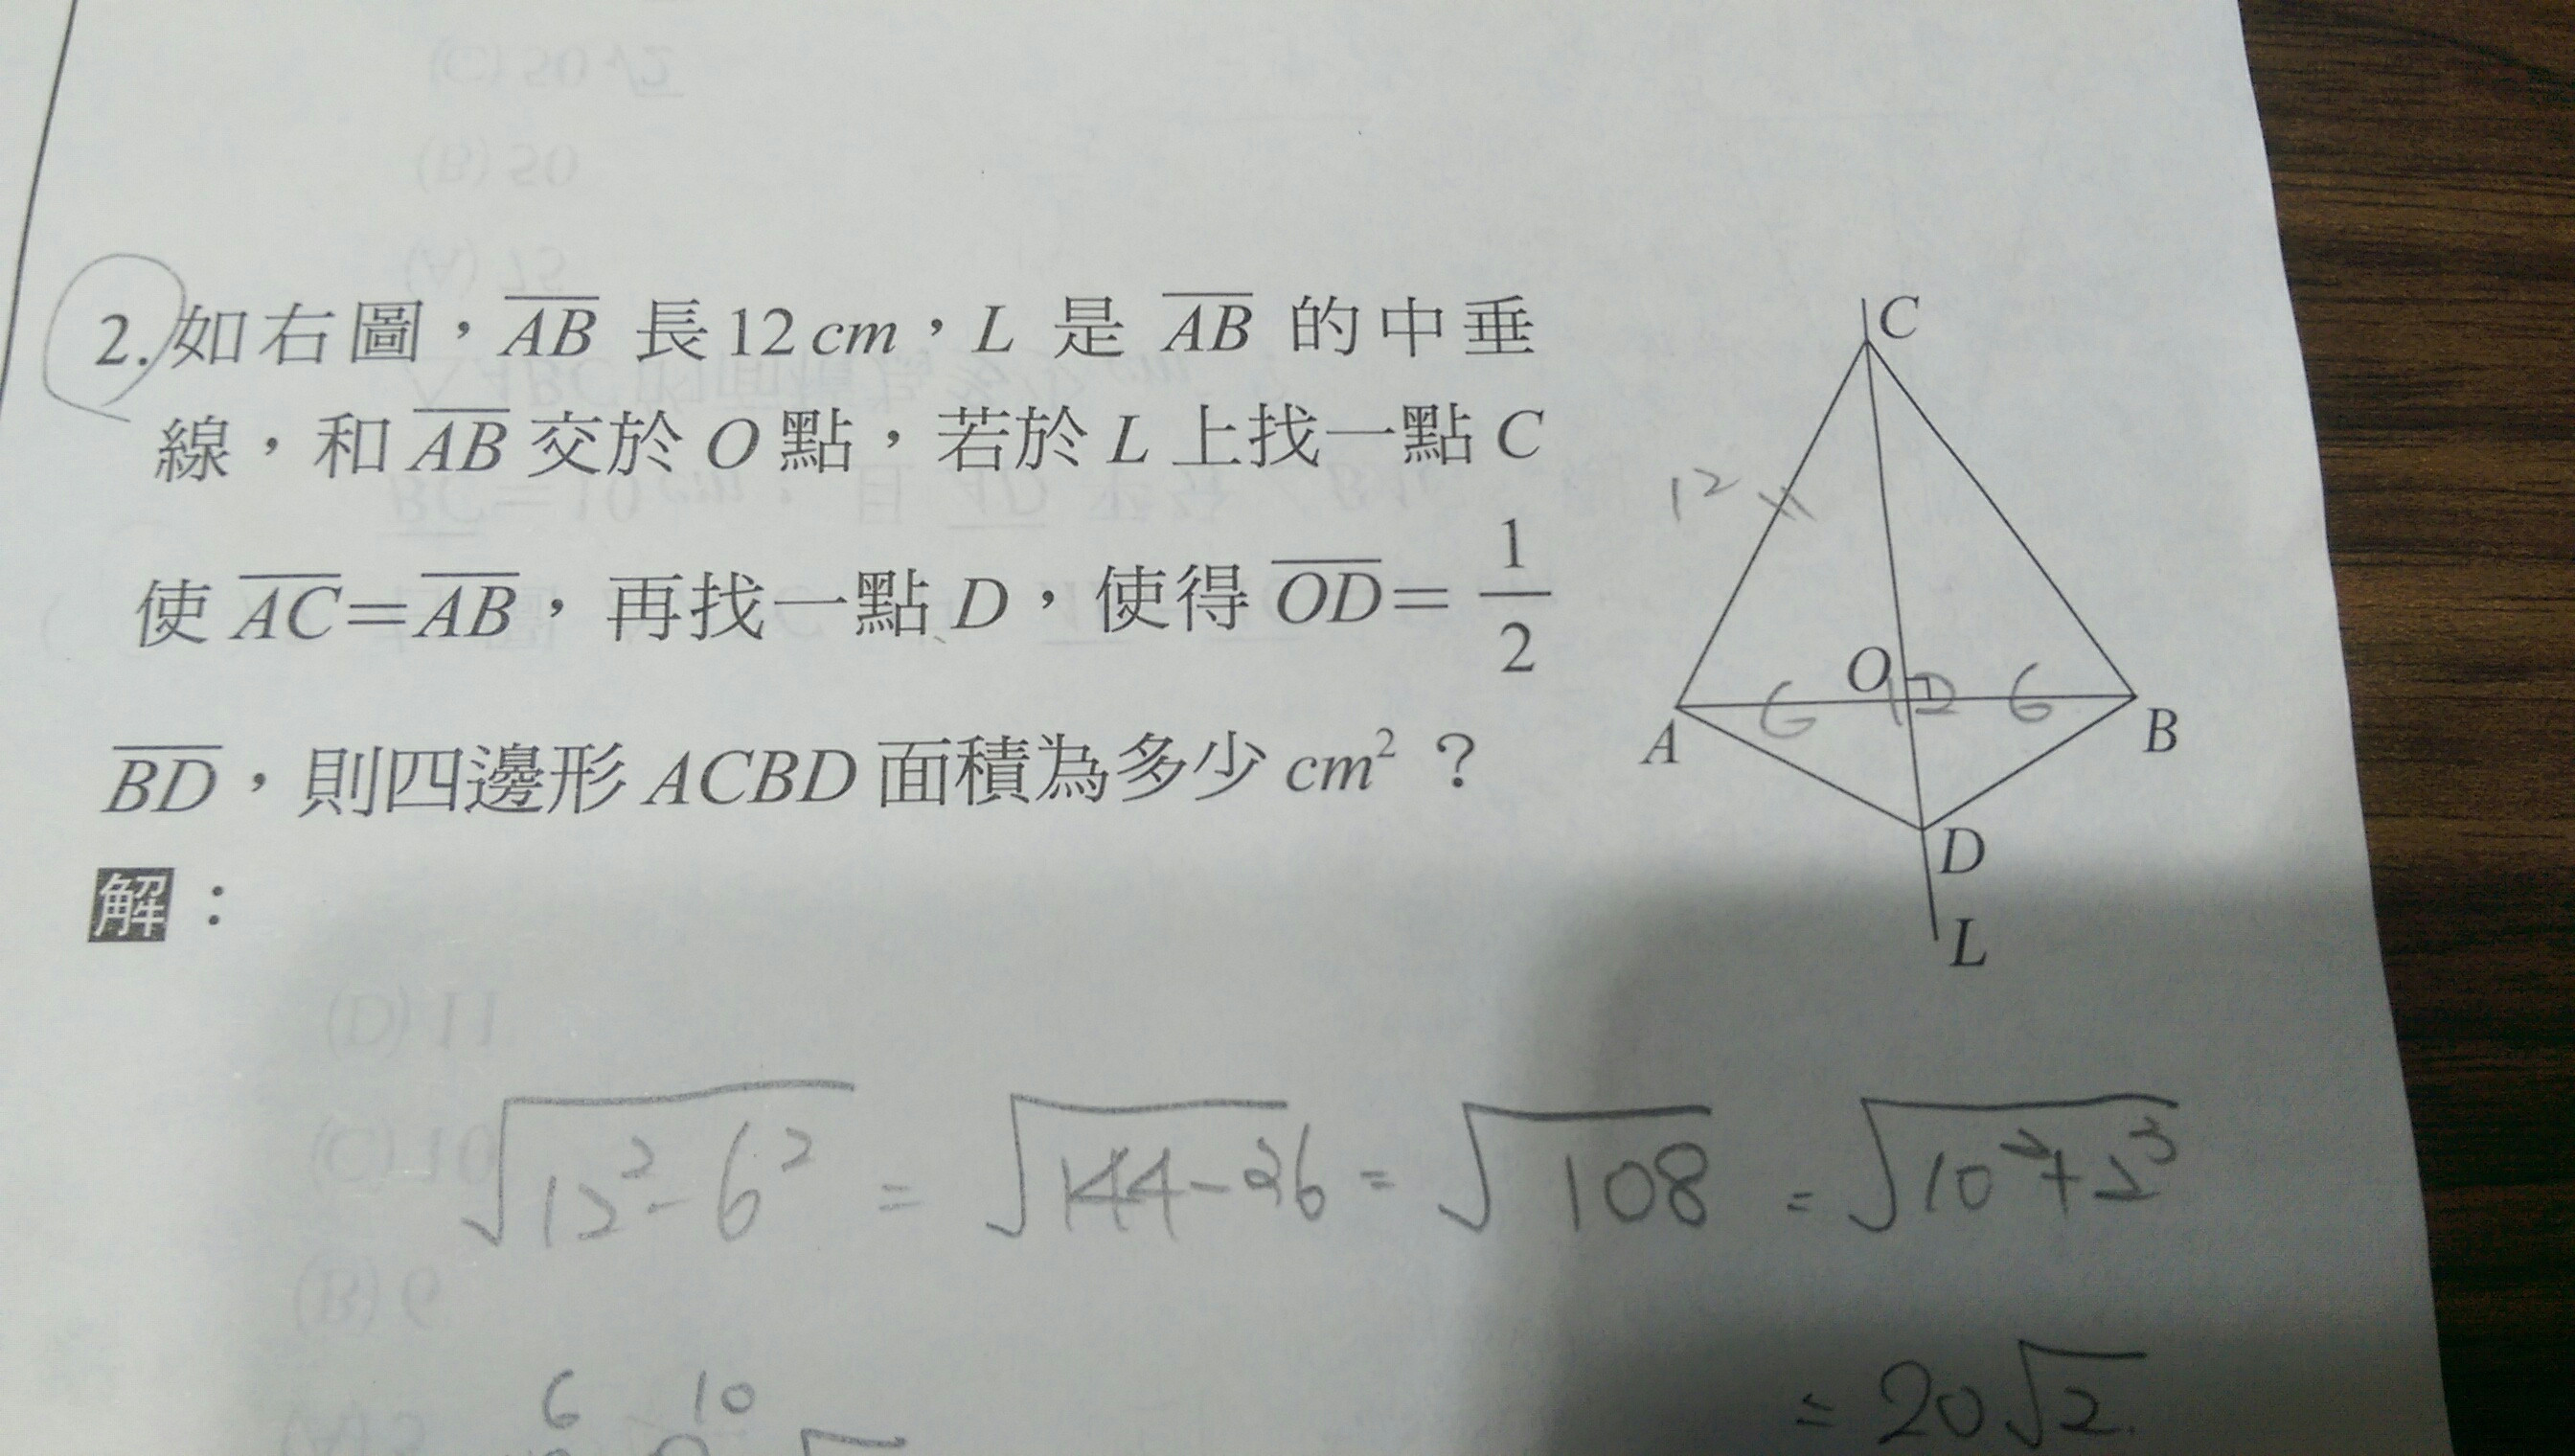 2. 如右圖，AB 長12 cm，L 是 AB 的中垂
線，和 AB 交於 O 點，若於 L 上找一點 C
使 AC=AB，再找一點 D，使得 OD= 1/2
BD，則四邊形 ACBD 面積為多少 cm² ？
解：
C
12
O
A
6
12
6
B
D
L
√12²-6² = √144-36 = √108 = √10²+2³
= 20√2
6 10